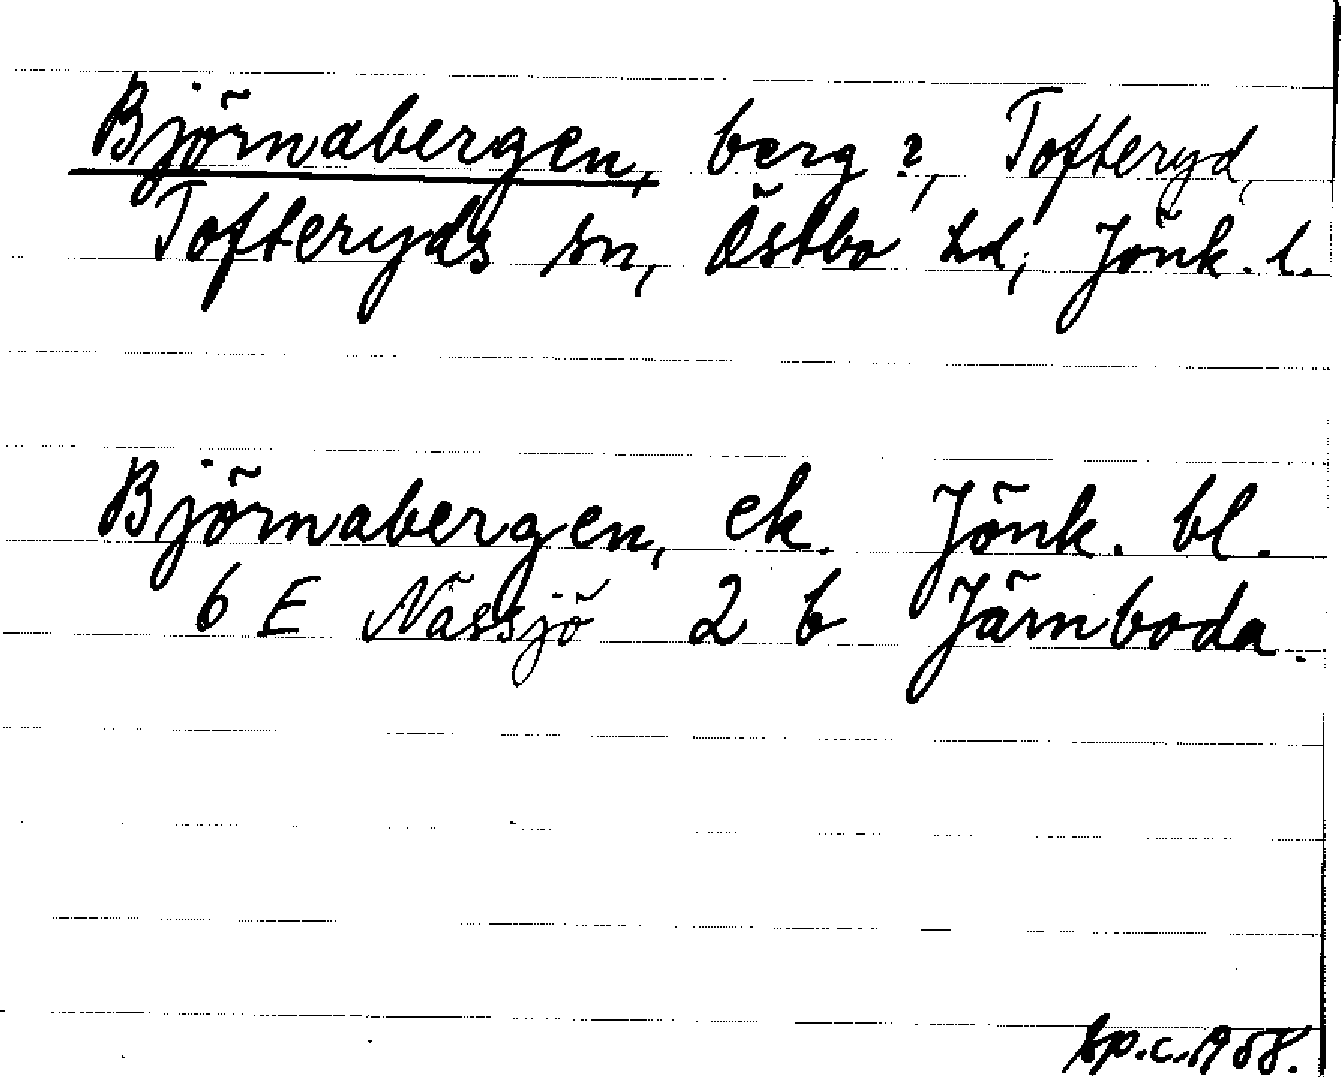 Björnabergen, berg ?, Tofteryd,
Tofteryds sn, Östbo hd, Jönk. l.
Björnabergen, ek. Jönk. bl.
6 E Nässjö 2 b Järnboda.
sp.c. 1958.